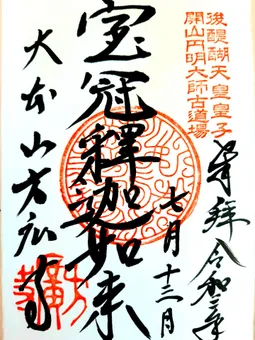 後醍醐天皇皇子
開山円明大師古道場
奉拝 令和三年
七月十三日
宝冠釋迦如来
大本山方広寺